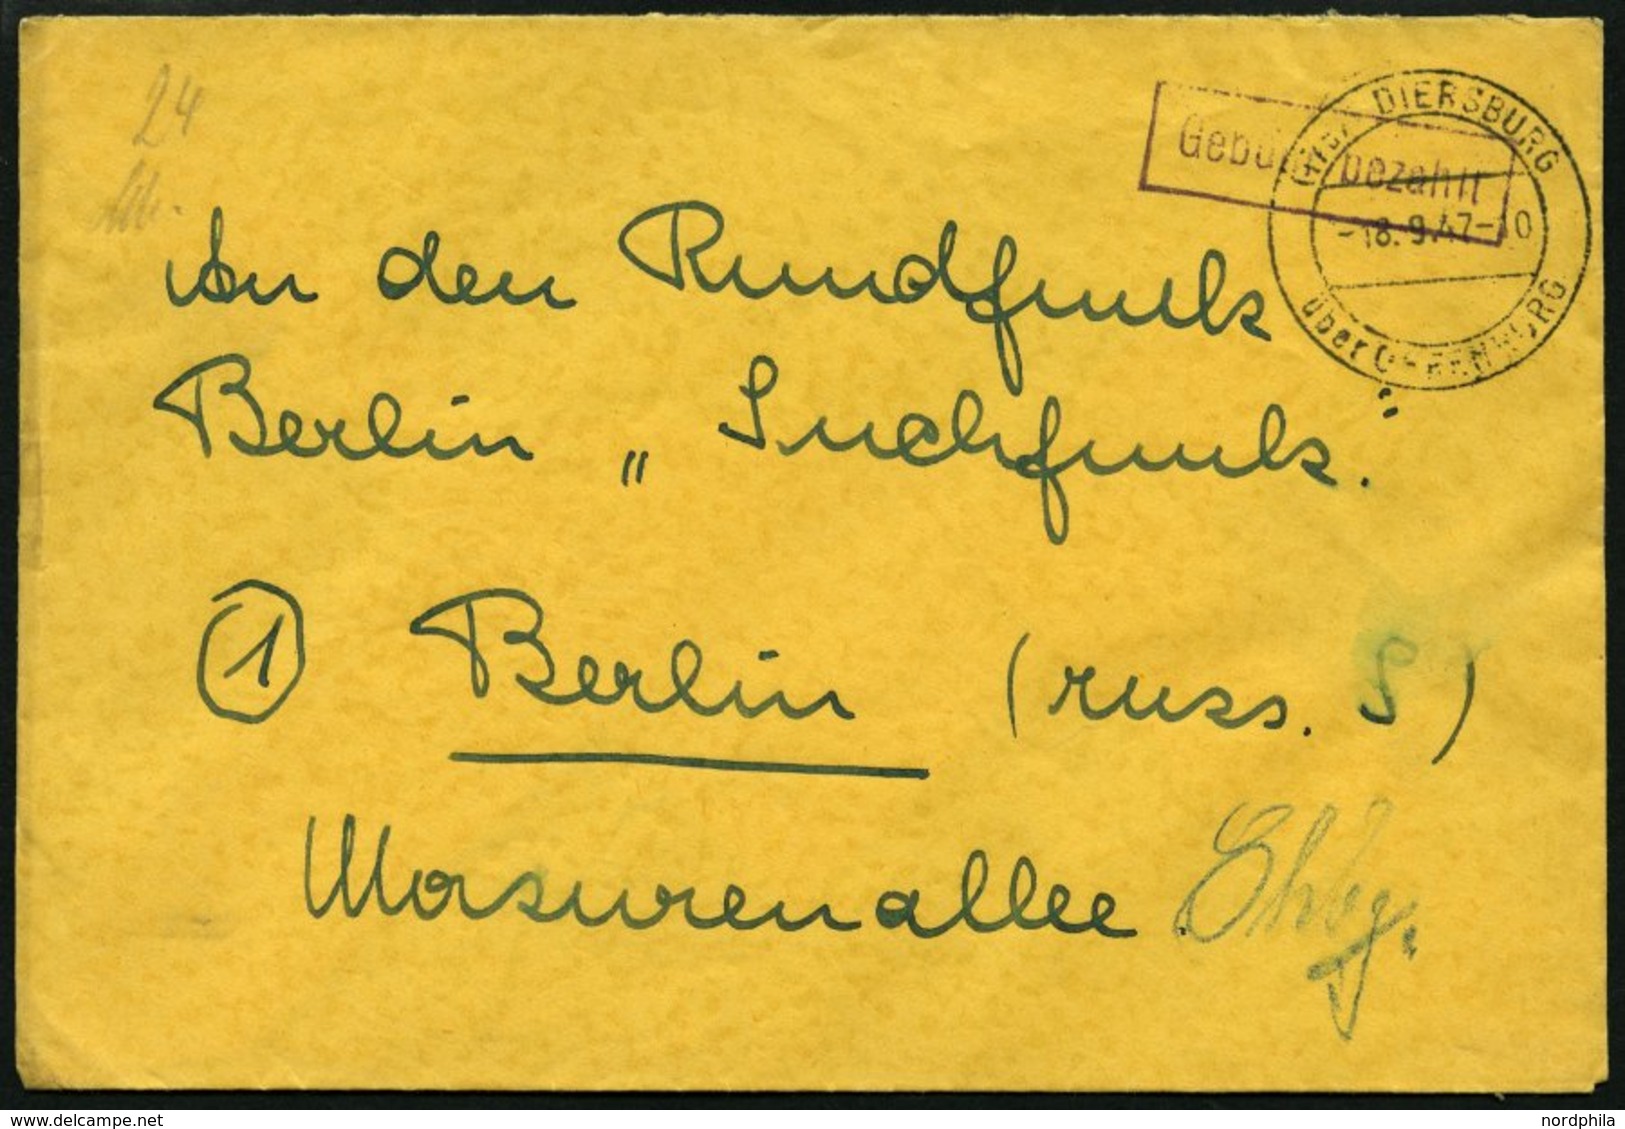 24
Gebühr bezahlt
DIERSBURG
-18.9.47-10
über OFFENBURG
An den Rundfunk
Berlin „Suchfunk."
1 Berlin (russ. S)
Masurenallee.
Chbg.
delcampe.net
nordphila